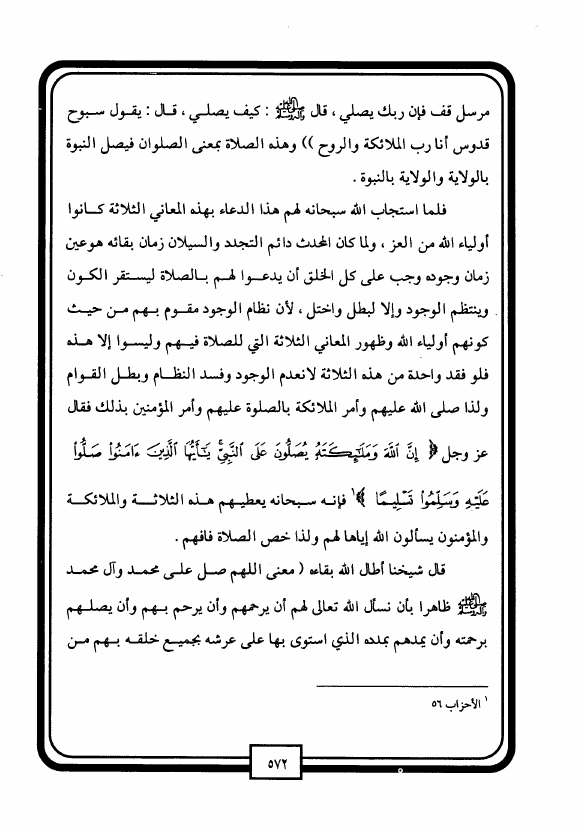 مرسل قف فإن ربك يصلي ، قال ﷺ : كيف يصلي ، قال : يقول سبوح
قدوس أنا رب الملائكة والروح )) وهذه الصلاة بمعنى الصلوان فيصل النبوة
بالولاية والولاية بالنبوة .
فلما استجاب الله سبحانه لهم هذا الدعاء بهذه المعاني الثلاثة كانوا
أولياء الله من العز ، ولما كان المحدث دائم التجدد والسيلان زمان بقائه هوعين
زمان وجوده وجب على كل الخلق أن يدعوا لهم بالصلاة ليستقر الكون
وينتظم الوجود وإلا لبطل واختل ، لأن نظام الوجود مقوم بهم من حيث
كونهم أولياء الله وظهور المعاني الثلاثة التي للصلاة فيهم وليسوا إلا هذه
فلو فقد واحدة من هذه الثلاثة لانعدم الوجود وفسد النظام وبطل القوام
ولذا صلى الله عليهم وأمر الملائكة بالصلوة عليهم وأمر المؤمنين بذلك فقال
عز وجل ﴿ إِنَّ ٱللَّهَ وَمَلَـٰٓئِكَتَهُۥ يُصَلُّونَ عَلَى ٱلنَّبِىِّ ۚ يَـٰٓأَيُّهَا ٱلَّذِينَ ءَامَنُوا۟ صَلُّوا۟
عَلَيْهِ وَسَلِّمُوا۟ تَسْلِيمًا ﴾١ فإنه سبحانه يعطيهم هذه الثلاثة والملائكة
والمؤمنون يسألون الله إياها لهم ولذا خص الصلاة فافهم .
قال شيخنا أطال الله بقاءه ( معنى اللهم صل على محمد وآل محمد
ﷺ ظاهرا بأن نسأل الله تعالى لهم أن يرحمهم وأن يرحم بهم وأن يصلهم
برحمته وأن يمدهم بمدده الذي استوى بها على عرشه بجميع خلقه بهم من
١ الأحزاب ٥٦
٥٧٢